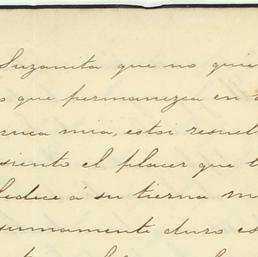 Suzanita que no quie
o que permanezca en
rnua mia, estoi resuel
siento el placer que t
deduce á su tierna m
sumamente duro es